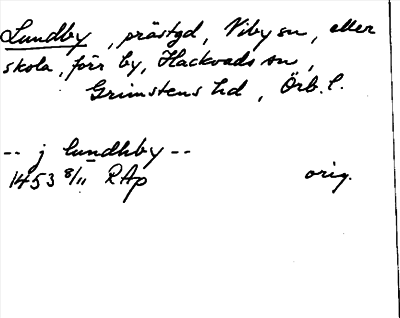 Lundby, prästgd, Viby sn, eller
skola, förr by, Hackvads sn,
Grimstens hd, Örb. l.
-- j lundhby --
1453 8/11 RAp orig.